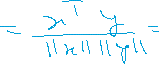 = xᵀ y / ||x|| ||y|| =